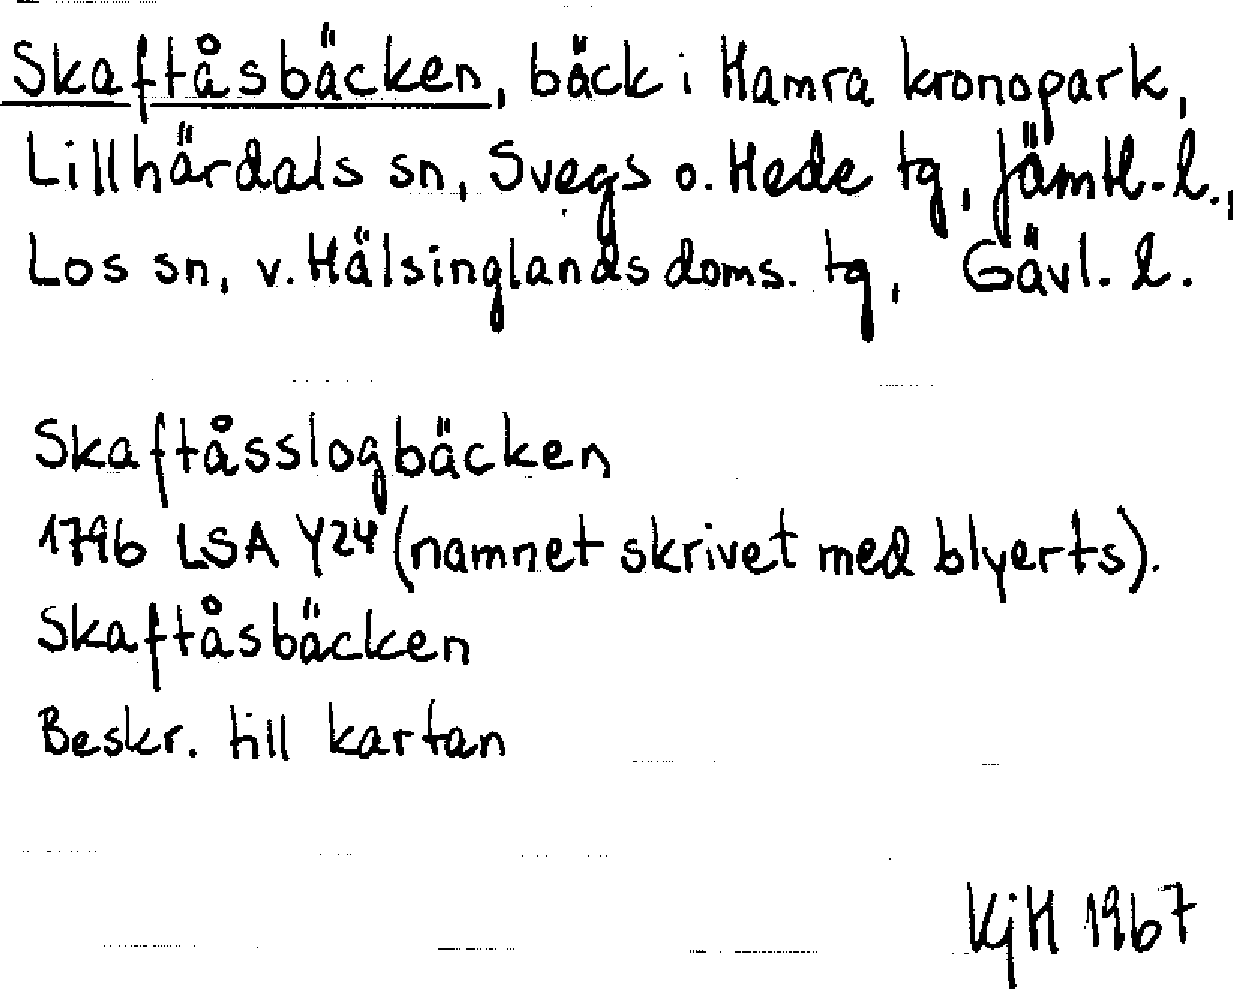 Skaftåsbäcken, bäck i Hamra kronopark,
Lillhärdals sn, Svegs o. Hede tg, Jämtl. l.,
Los sn, v. Hälsinglands doms. tg, Gävl. l.
Skaftåsslogbäcken
1796 LSA Y24 (namnet skrivet med blyerts).
Skaftåsbäcken
Beskr. till kartan
KjH 1967